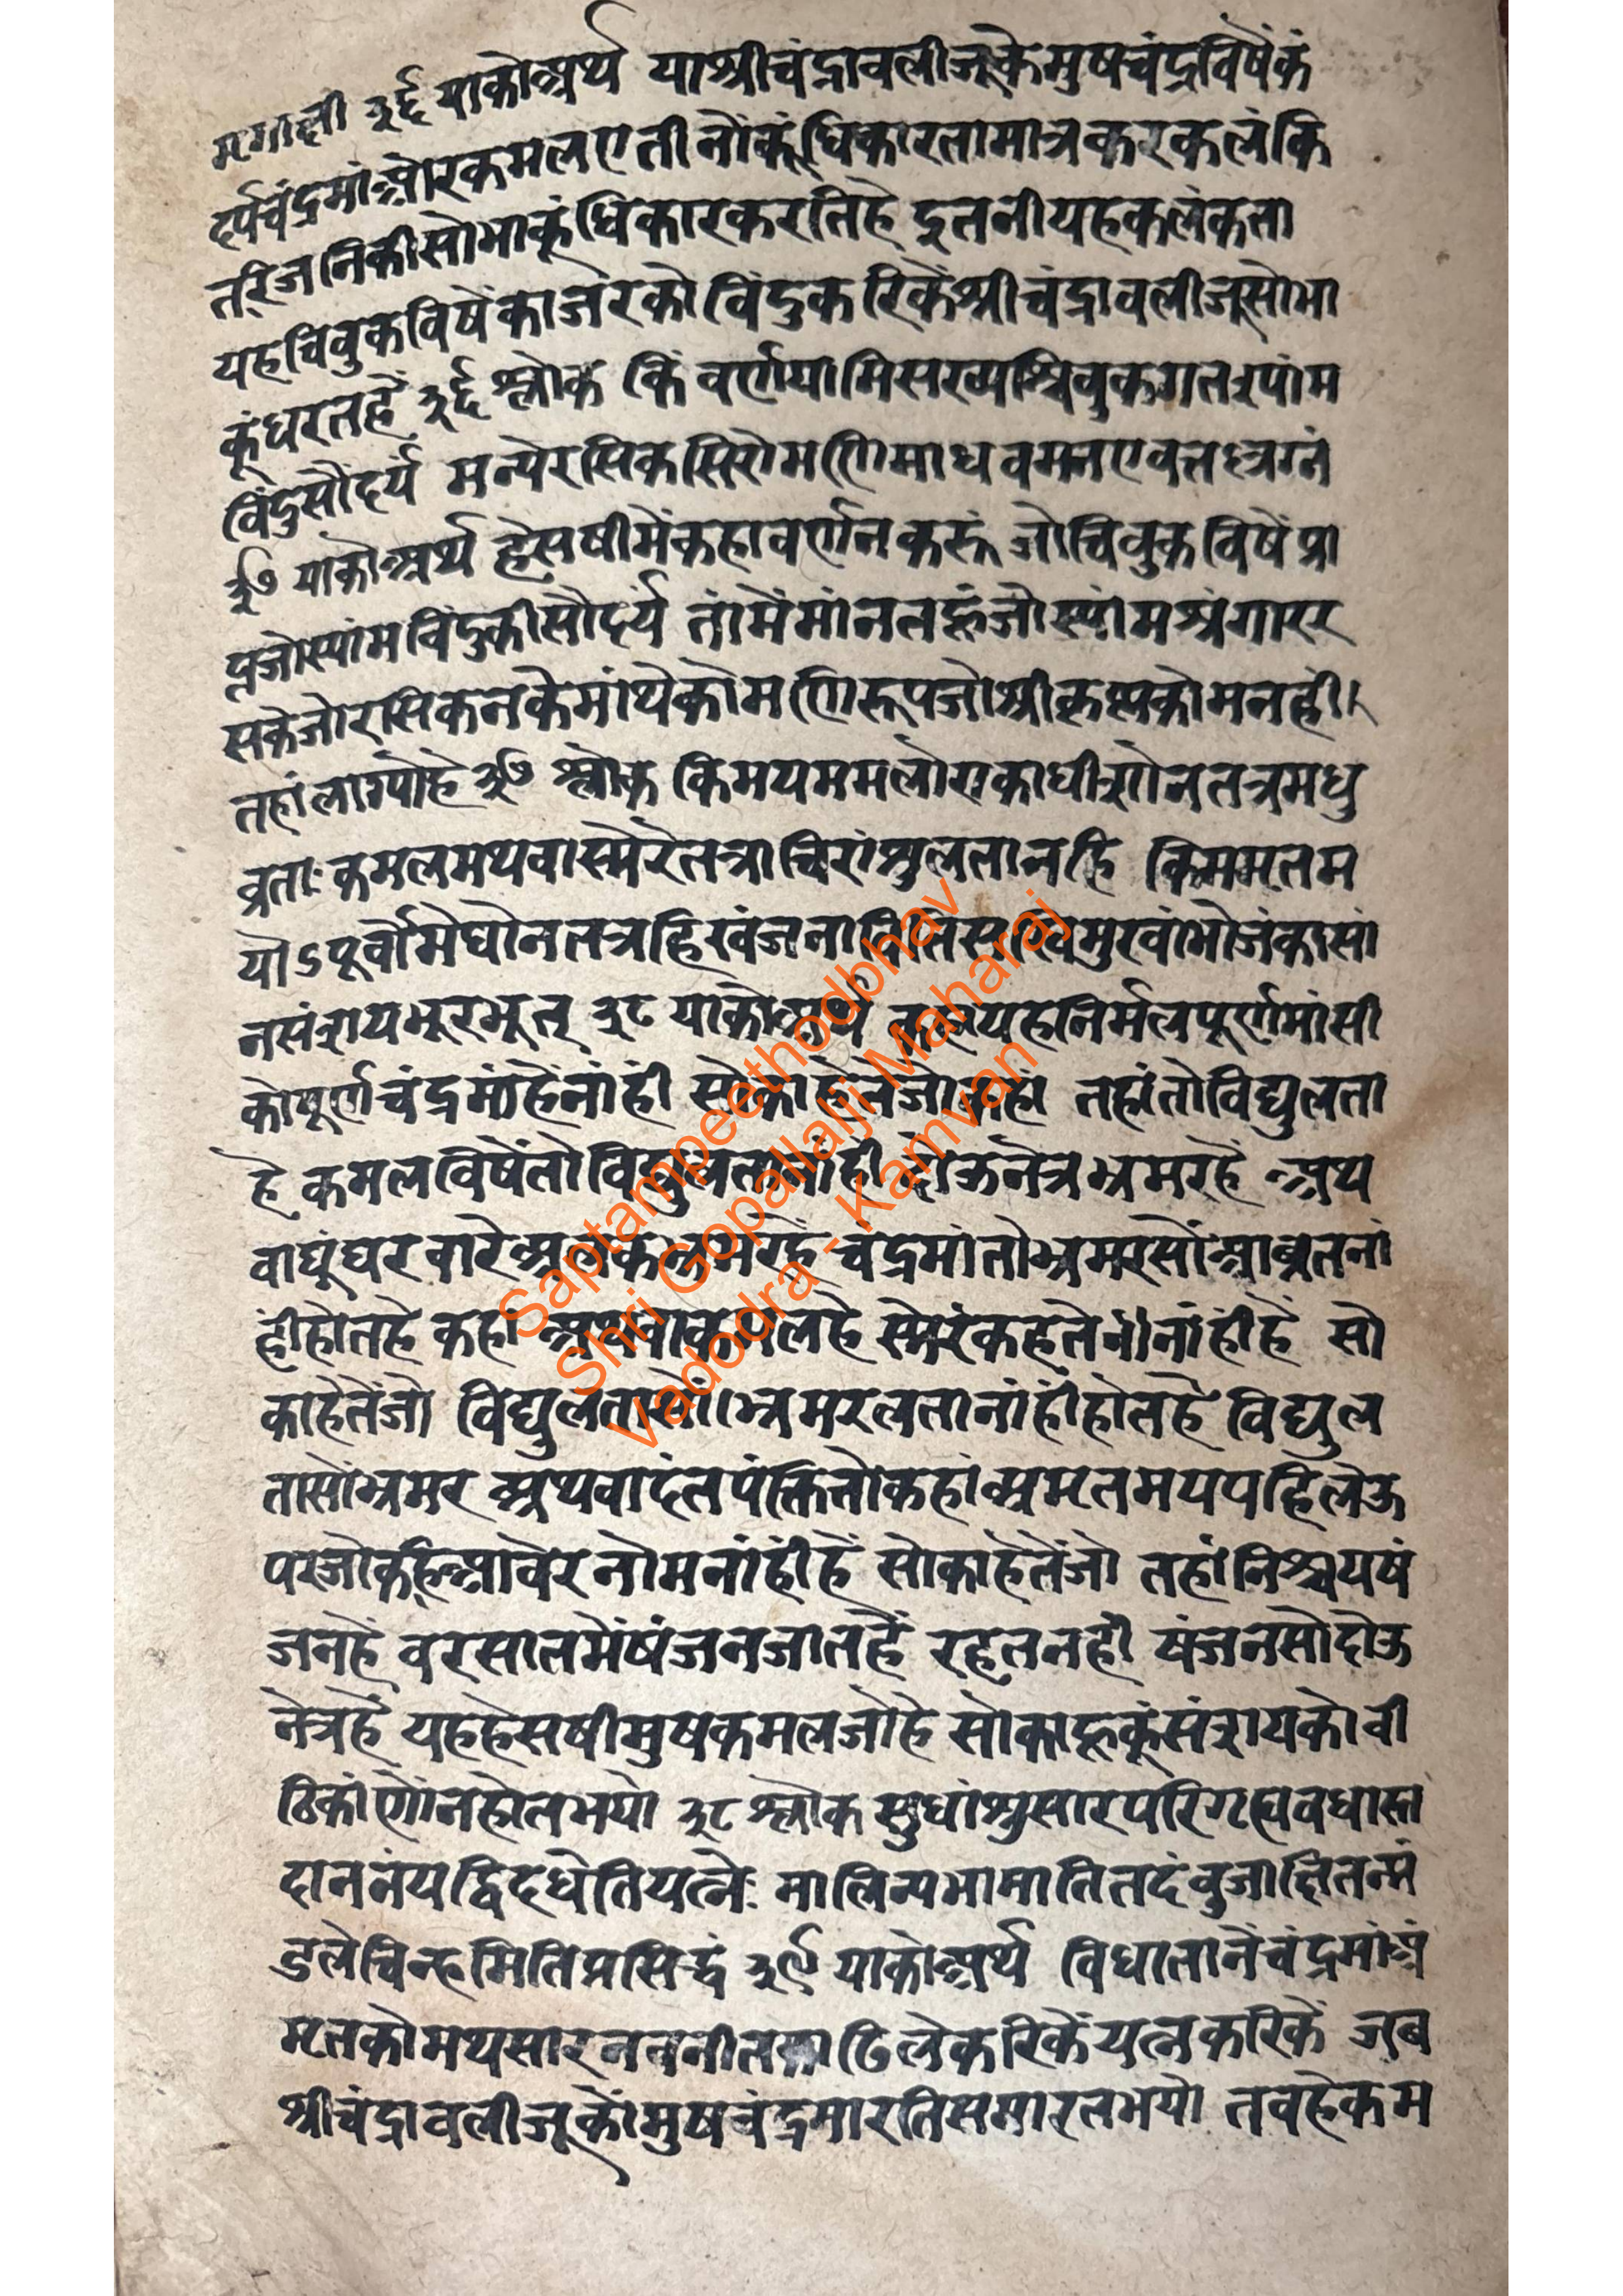 मृगाक्षी ३६ याकोअर्थ याश्रीचंद्रावलीजूकेमुषचंद्रविषैंकं
दर्पचंद्रमांओरकमलएतीनोंकूंधिकारतामात्रकरकलंकि
तरिजनिकीसोभाकूंधिकारकरतिहै इतनीयहकलंकता
यहचिवुकविषेंकाजरकोविंदुकरिकेंश्रीचंद्रावलीजूसोभा
कूंधरतहैं ३६ श्लोक किं वर्णयामिसख्यश्चिवुकगतश्यांम
विंदुसौंदर्यं मन्येरसिकसिरोमणिमाधवमनएवतत्रलग्नं
३७ याकोअर्थ हेसषीमेंकहावर्णनकरूं जोचिवुकविषेंप्रा
प्तजोस्यांमविंदुकीसौंदर्य तांमेंमांनतहूंजोस्यांमश्रृंगारर
सकेजोरसिकनकेमांथेकोमणिरूपजोश्रीकृष्णकोमनही
तहांलाग्योहै ३७ श्लोक किमयममलोराकाधीशोनतत्रमधु
व्रताःकमलमथवास्मेरंतत्राचिरांशुलतानहि किममृतम
योऽपूर्वोमेघोनतत्रहिखंजनाविति सखिमुखांभोजंकासां
नसंशयभूरभूत् ३८ याकोअर्थ कहायहनिर्मलपूर्णमांसी
कोपूर्णचंद्रमांहैनांहीं सोकाहेतेंजो तहां तहांतोविद्युलता
है कमलविषेंतोविद्युलतानांहीं दोऊनेत्रभ्रमरहै अथ
वाघूंघरवारेअलकभ्रमरहैं चंद्रमांतोभ्रमरसोंआवृतनां
हींहोतहै कहांअथवाकमलहै स्मेरंकहतेनांहींहैं सो
काहेतेंजो विद्युलतासोंभ्रमरलतानांहींहोतहै विद्युल
तासोंभ्रमर अथवादंतपंक्तितोकहांअमृतमयपहिलेऊ
परजोकहिआवेरनोमनांहींहैं सोकाहेतेंजो तहांनिश्चयषं
जनहैं वरसातमेंषंजनजातहैं रहतनहीं षंजनसोदोऊ
नेत्रहैं यहहेसषीमुषकमलजोहै सोकाहूकूंसंशयकोवी
ठिकांणोंनहोतभयो ३८ श्लोक सुधांशुसारपरिगृह्यवेधास्त
दाननंयद्विदधेतियत्नैः मालिन्यभामातितदंवुजाक्षितन्मं
डलेचिन्हमितिप्रसिद्धं ३९ याकोअर्थ विधातानेंचंद्रमांअं
मृतकोमथसारनवनीतकाढिलेकरिकेंयत्नकरिकें जब
श्रीचंद्रावलीजूकोंमुषचंद्रमारतिसमारतभयो तवहेकम
Saptampeethodbhav
Shri Gopallalji Maharaj
Vadodra - Kamvan